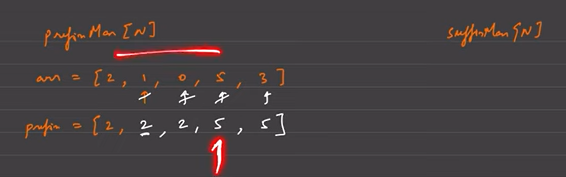 prefixMax[N]
suffixMax[N]
arr = [2, 1, 0, 5, 3]
prefix = [2, 2, 2, 5, 5]